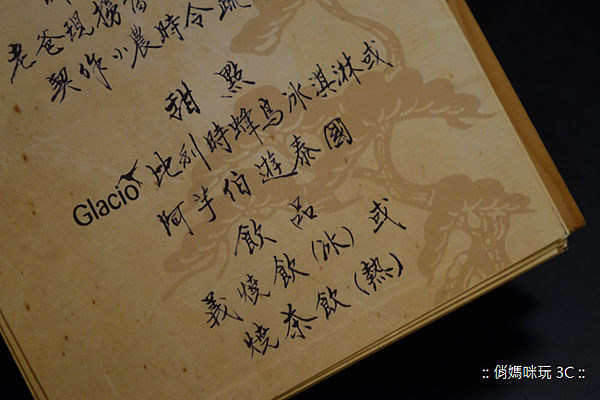 老爸現撈
契作小農時令蔬
甜點
Glacio 比利時蜂鳥冰淇淋或
阿芋伯遊泰國
飲品
義燒飲(冰)或
燒茶飲(熱)
:: 俏媽咪玩 3C ::